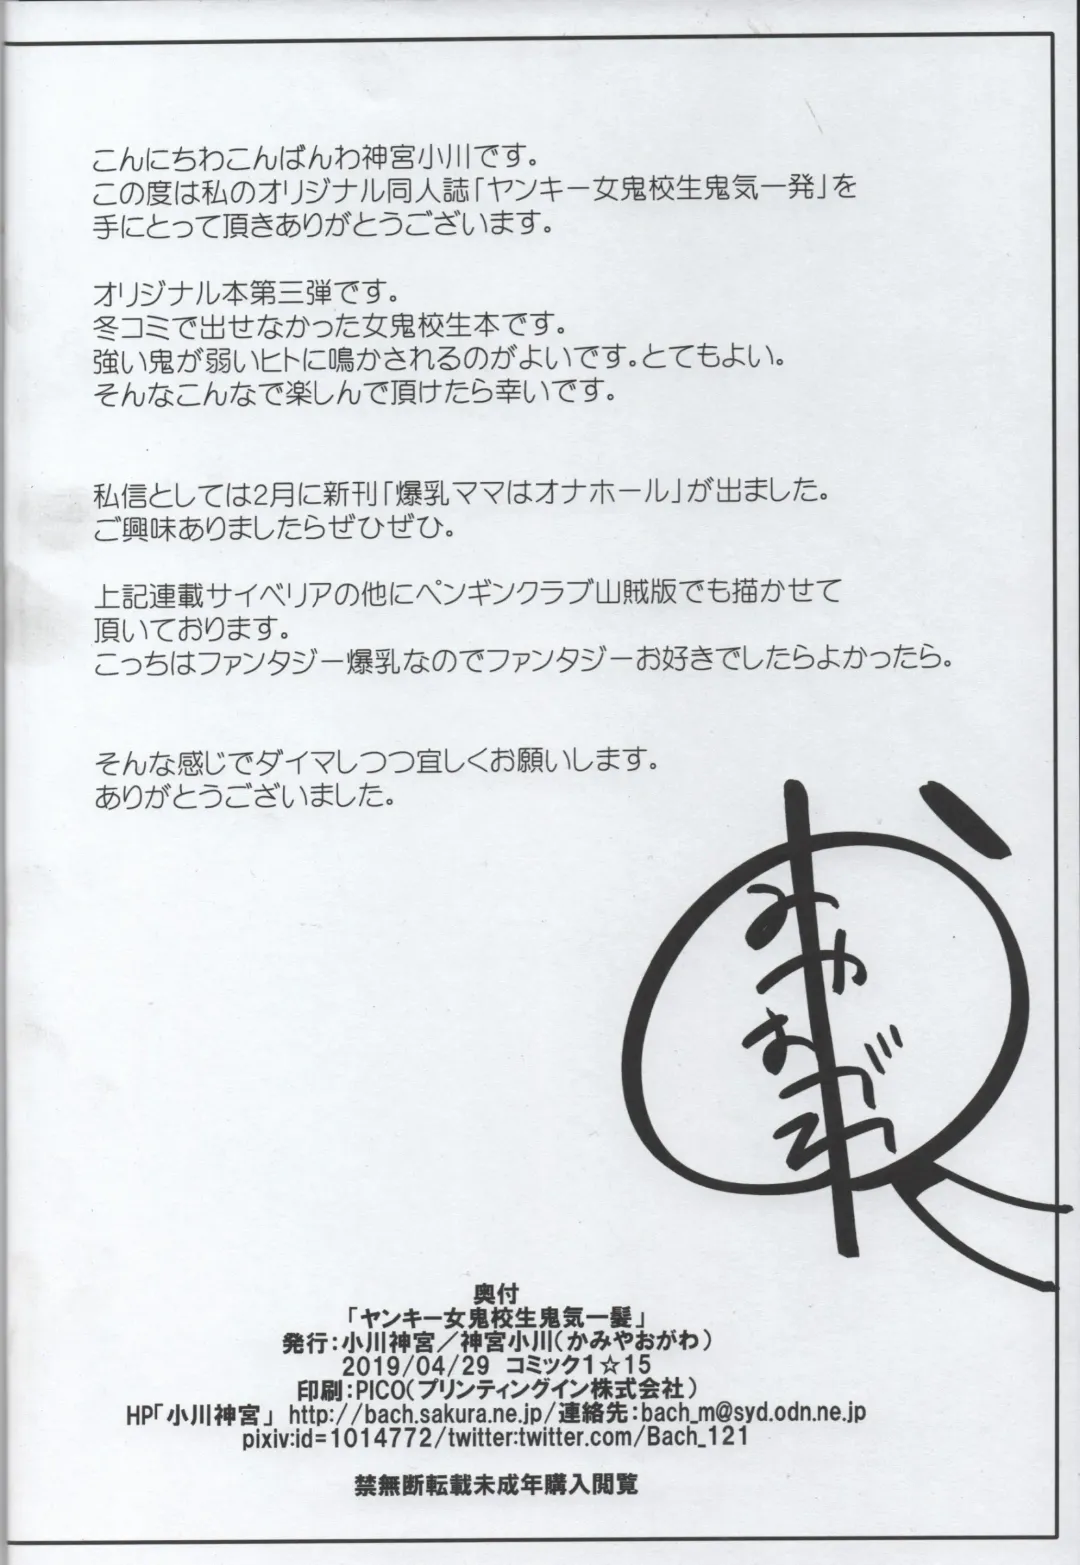 こんにちわこんばんわ神宮小川です。
この度は私のオリジナル同人誌「ヤンキー女鬼校生鬼気一発」を
手にとって頂きありがとうございます。
オリジナル本第三弾です。
冬コミで出せなかった女鬼校生本です。
強い鬼が弱いヒトに鳴かされるのがよいです。とてもよい。
そんなこんなで楽しんで頂けたら幸いです。
私信としては2月に新刊「爆乳ママはオナホール」が出ました。
ご興味ありましたらぜひぜひ。
上記連載サイベリアの他にペンギンクラブ山賊版でも描かせて
頂いております。
こっちはファンタジー爆乳なのでファンタジーお好きでしたらよかったら。
そんな感じでダイマしつつ宜しくお願いします。
ありがとうございました。
みやおがわ
奥付
「ヤンキー女鬼校生鬼気一髪」
発行:小川神宮／神宮小川(かみやおがわ)
2019/04/29 コミック1☆15
印刷:PICO(プリンティングイン株式会社)
HP「小川神宮」 http://bach.sakura.ne.jp/連絡先:bach_m@syd.odn.ne.jp
pixiv:id=1014772/twitter:twitter.com/Bach_121
禁無断転載未成年購入閲覧